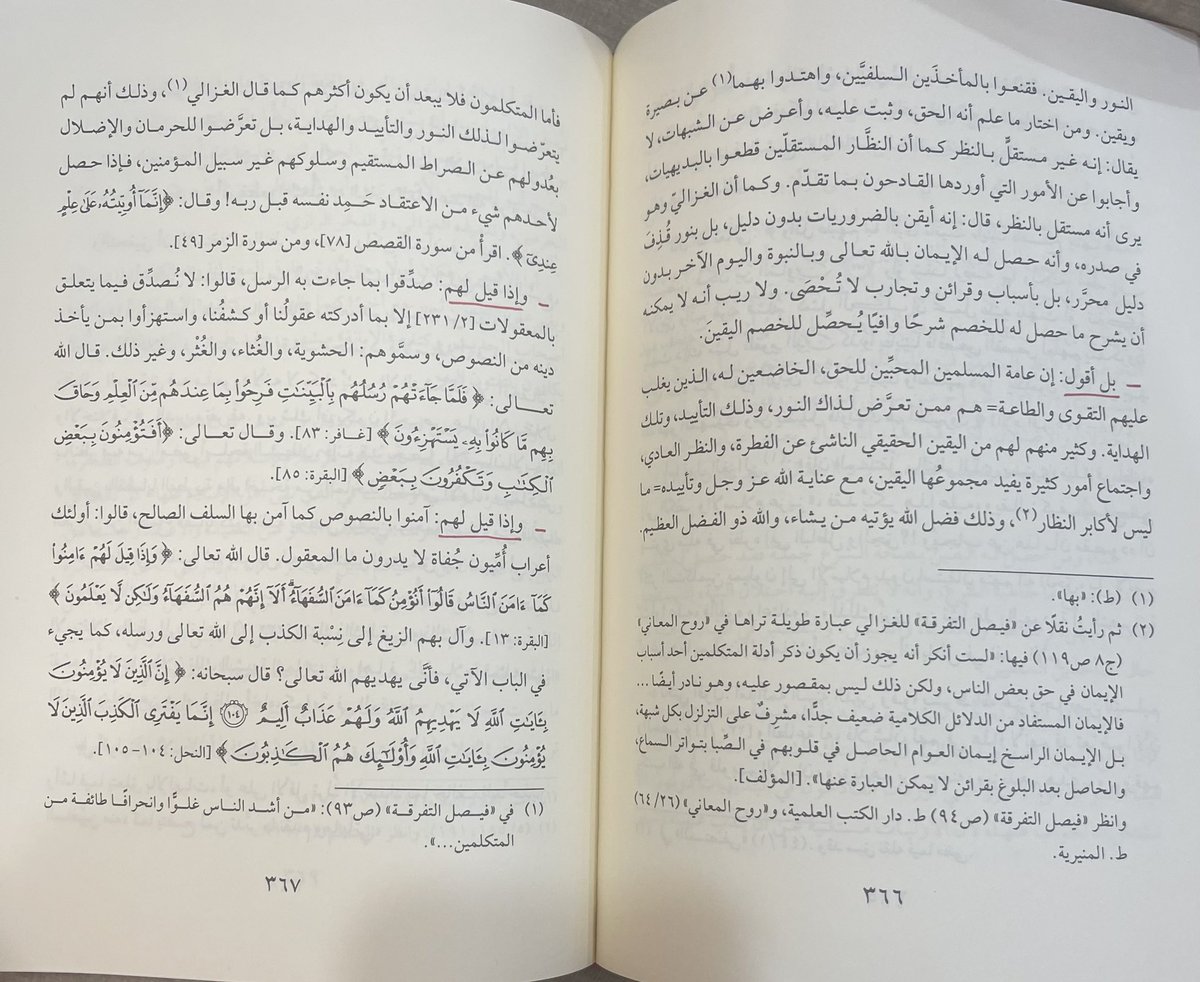 النور واليقين. فقنعوا بالمأخذَين السلفيَّين، واهتدوا بهما(١) عن بصيرة
ويقين. ومن اختار ما علم أنه الحق، وثبت عليه، وأعرض عن الشبهات، لا
يقال: إنه غير مستقلّ بالنظر كما أن النظَّار المستقلّين قطعوا بالبديهيات،
وأجابوا عن الأمور التي أوردها القادحون بما تقدّم. وكما أن الغزاليّ وهو
يرى أنه مستقل بالنظر، قال: إنه أيقن بالضروريات بدون دليل، بل بنور قُذِفَ
في صدره، وأنه حصل له الإيمان بالله تعالى وبالنبوة واليوم الآخر بدون
دليل محرَّر، بل بأسباب وقرائن وتجارب لا تُحْصَى. ولا ريب أنه لا يمكنه
أن يشرح ما حصل له للخصم شرحًا وافيًا يُحصِّل للخصم اليقينَ.
بل أقول: إن عامة المسلمين المحبِّين للحق، الخاضعين له، الذين يغلب
عليهم التقوى والطاعة= هم ممن تعرَّض لذاك النور، وذلك التأييد، وتلك
الهداية. وكثير منهم لهم من اليقين الحقيقي الناشئ عن الفطرة، والنظر العادي،
واجتماع أمور كثيرة يفيد مجموعُها اليقين، مع عناية الله عز وجل وتأييده= ما
ليس لأكابر النظار(٢)، وذلك فضل الله يؤتيه من يشاء، والله ذو الفضل العظيم.
(١) (ط): «بها».
(٢) ثم رأيتُ نقلًا عن «فيصل التفرقة» للغزالي عبارة طويلة تراها في «روح المعاني»
(ج٨ ص١١٩) فيها: «لست أنكر أنه يجوز أن يكون ذكر أدلة المتكلمين أحد أسباب
الإيمان في حق بعض الناس، ولكن ذلك ليس بمقصور عليه، وهو نادر أيضًا ...
فالإيمان المستفاد من الدلائل الكلامية ضعيف جدًّا، مشرِفٌ على التزلزل بكل شبهة،
بل الإيمان الراسخ إيمان العوام الحاصل في قلوبهم في الصِّبا بتواتر السماع،
والحاصل بعد البلوغ بقرائن لا يمكن العبارة عنها». [المؤلف].
وانظر «فيصل التفرقة» (ص٩٤) ط. دار الكتب العلمية، و«روح المعاني» (٢٦/ ٦٤)
ط. المنيرية.
٣٦٦
فأما المتكلمون فلا يبعد أن يكون أكثرهم كما قال الغزالي(١)، وذلك أنهم لم
يتعرّضوا لذلك النور والتأييد والهداية، بل تعرَّضوا للحرمان والإضلال
بعُدولهم عن الصراط المستقيم وسلوكهم غير سبيل المؤمنين، فإذا حصل
لأحدهم شيء من الاعتقاد حَمِد نفسه قبل ربه! وقال: ﴿إِنَّمَآ أُوتِيتُهُۥ عَلَىٰ عِلْمٍ
عِندِىٓ﴾. اقرأ من سورة القصص [٧٨]، ومن سورة الزمر [٤٩].
وإذا قيل لهم: صدِّقوا بما جاءت به الرسل، قالوا: لا نُصدِّق فيما يتعلق
بالمعقولات [٢/ ٢٣١] إلا بما أدركته عقولُنا أو كشفُنا، واستهزأوا بمن يأخذ
دينه من النصوص، وسمَّوهم: الحشوية، والغُثاء، والغُثْر، وغير ذلك. قال الله
تعالى: ﴿فَلَمَّا جَآءَتْهُمْ رُسُلُهُم بِالْبَيِّنَٰتِ فَرِحُوا۟ بِمَا عِندَهُم مِّنَ الْعِلْمِ وَحَاقَ
بِهِم مَّا كَانُوا۟ بِهِۦ يَسْتَهْزِءُونَ﴾ [غافر: ٨٣]. وقال تعالى: ﴿أَفَتُؤْمِنُونَ بِبَعْضِ
الْكِتَٰبِ وَتَكْفُرُونَ بِبَعْضٍ﴾ [البقرة: ٨٥].
وإذا قيل لهم: آمنوا بالنصوص كما آمن بها السلف الصالح، قالوا: أولئك
أعراب أُمِّيون جُفاة لا يدرون ما المعقول. قال الله تعالى: ﴿وَإِذَا قِيلَ لَهُمْ ءَامِنُوا۟
كَمَآ ءَامَنَ النَّاسُ قَالُوٓا۟ أَنُؤْمِنُ كَمَآ ءَامَنَ السُّفَهَآءُ ۗ أَلَآ إِنَّهُمْ هُمُ السُّفَهَآءُ وَلَٰكِن لَّا يَعْلَمُونَ﴾
[البقرة: ١٣]. وآل بهم الزيغ إلى نِسْبة الكذب إلى الله تعالى ورسله، كما يجيء
في الباب الآتي، فأنَّى يهديهم الله تعالى؟ قال سبحانه: ﴿إِنَّ الَّذِينَ لَا يُؤْمِنُونَ
بِـَٔايَٰتِ اللَّهِ لَا يَهْدِيهِمُ اللَّهُ وَلَهُمْ عَذَابٌ أَلِيمٌ ۝١٠٤ إِنَّمَا يَفْتَرِى الْكَذِبَ الَّذِينَ لَا
يُؤْمِنُونَ بِـَٔايَٰتِ اللَّهِ وَأُو۟لَٰٓئِكَ هُمُ الْكَٰذِبُونَ﴾ [النحل: ١٠٤- ١٠٥].
(١) في «فيصل التفرقة» (ص٩٣): «من أشد الناس غلوًّا وانحرافًا طائفة من
المتكلمين...».
٣٦٧